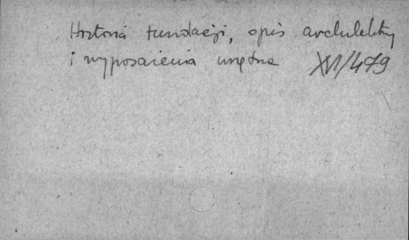 Historia fundacji, opis architektury
i wyposażenia wnętrza XVI/479